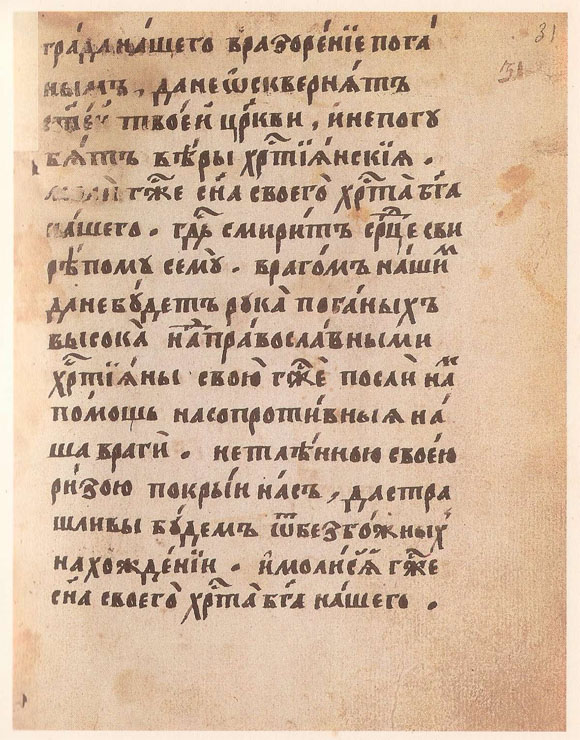 31
гра́да на́шего вразоре́нїе пога́
ны́мъ, да не ѿскверня́тъ
ст҃ѣ́й твое́й цр҃кви, и не погу
бя́тъ вѣ́ры хрⷭ҇тїя́нскїя.
моли̂ гж҃е сн҃а своего̀ хрⷭ҇та̀ бг҃а
на́шего. гдⷭ҇ь смири́тъ срⷣце сви
рѣ́пому сему̀. враго́мъ на́шиⷨ
да не бу́детъ рука̀ пога́ныхъ
высока̀ на правосла́вными
хрⷭ҇тїя́ны свою̀ гж҃е послѝ наⷨ
по́мощь на сопроти́вныя на́
ша враги̂. нетлѣ́нною своею
ри́зою покры́и на́съ, да стра
шливы бу́демъ ѿ безбо́жныхъ
нахожде́нїи. и моли́сѧ гж҃е
сн҃а своего̀ хрⷭ҇та̀ бг҃а на́шего.